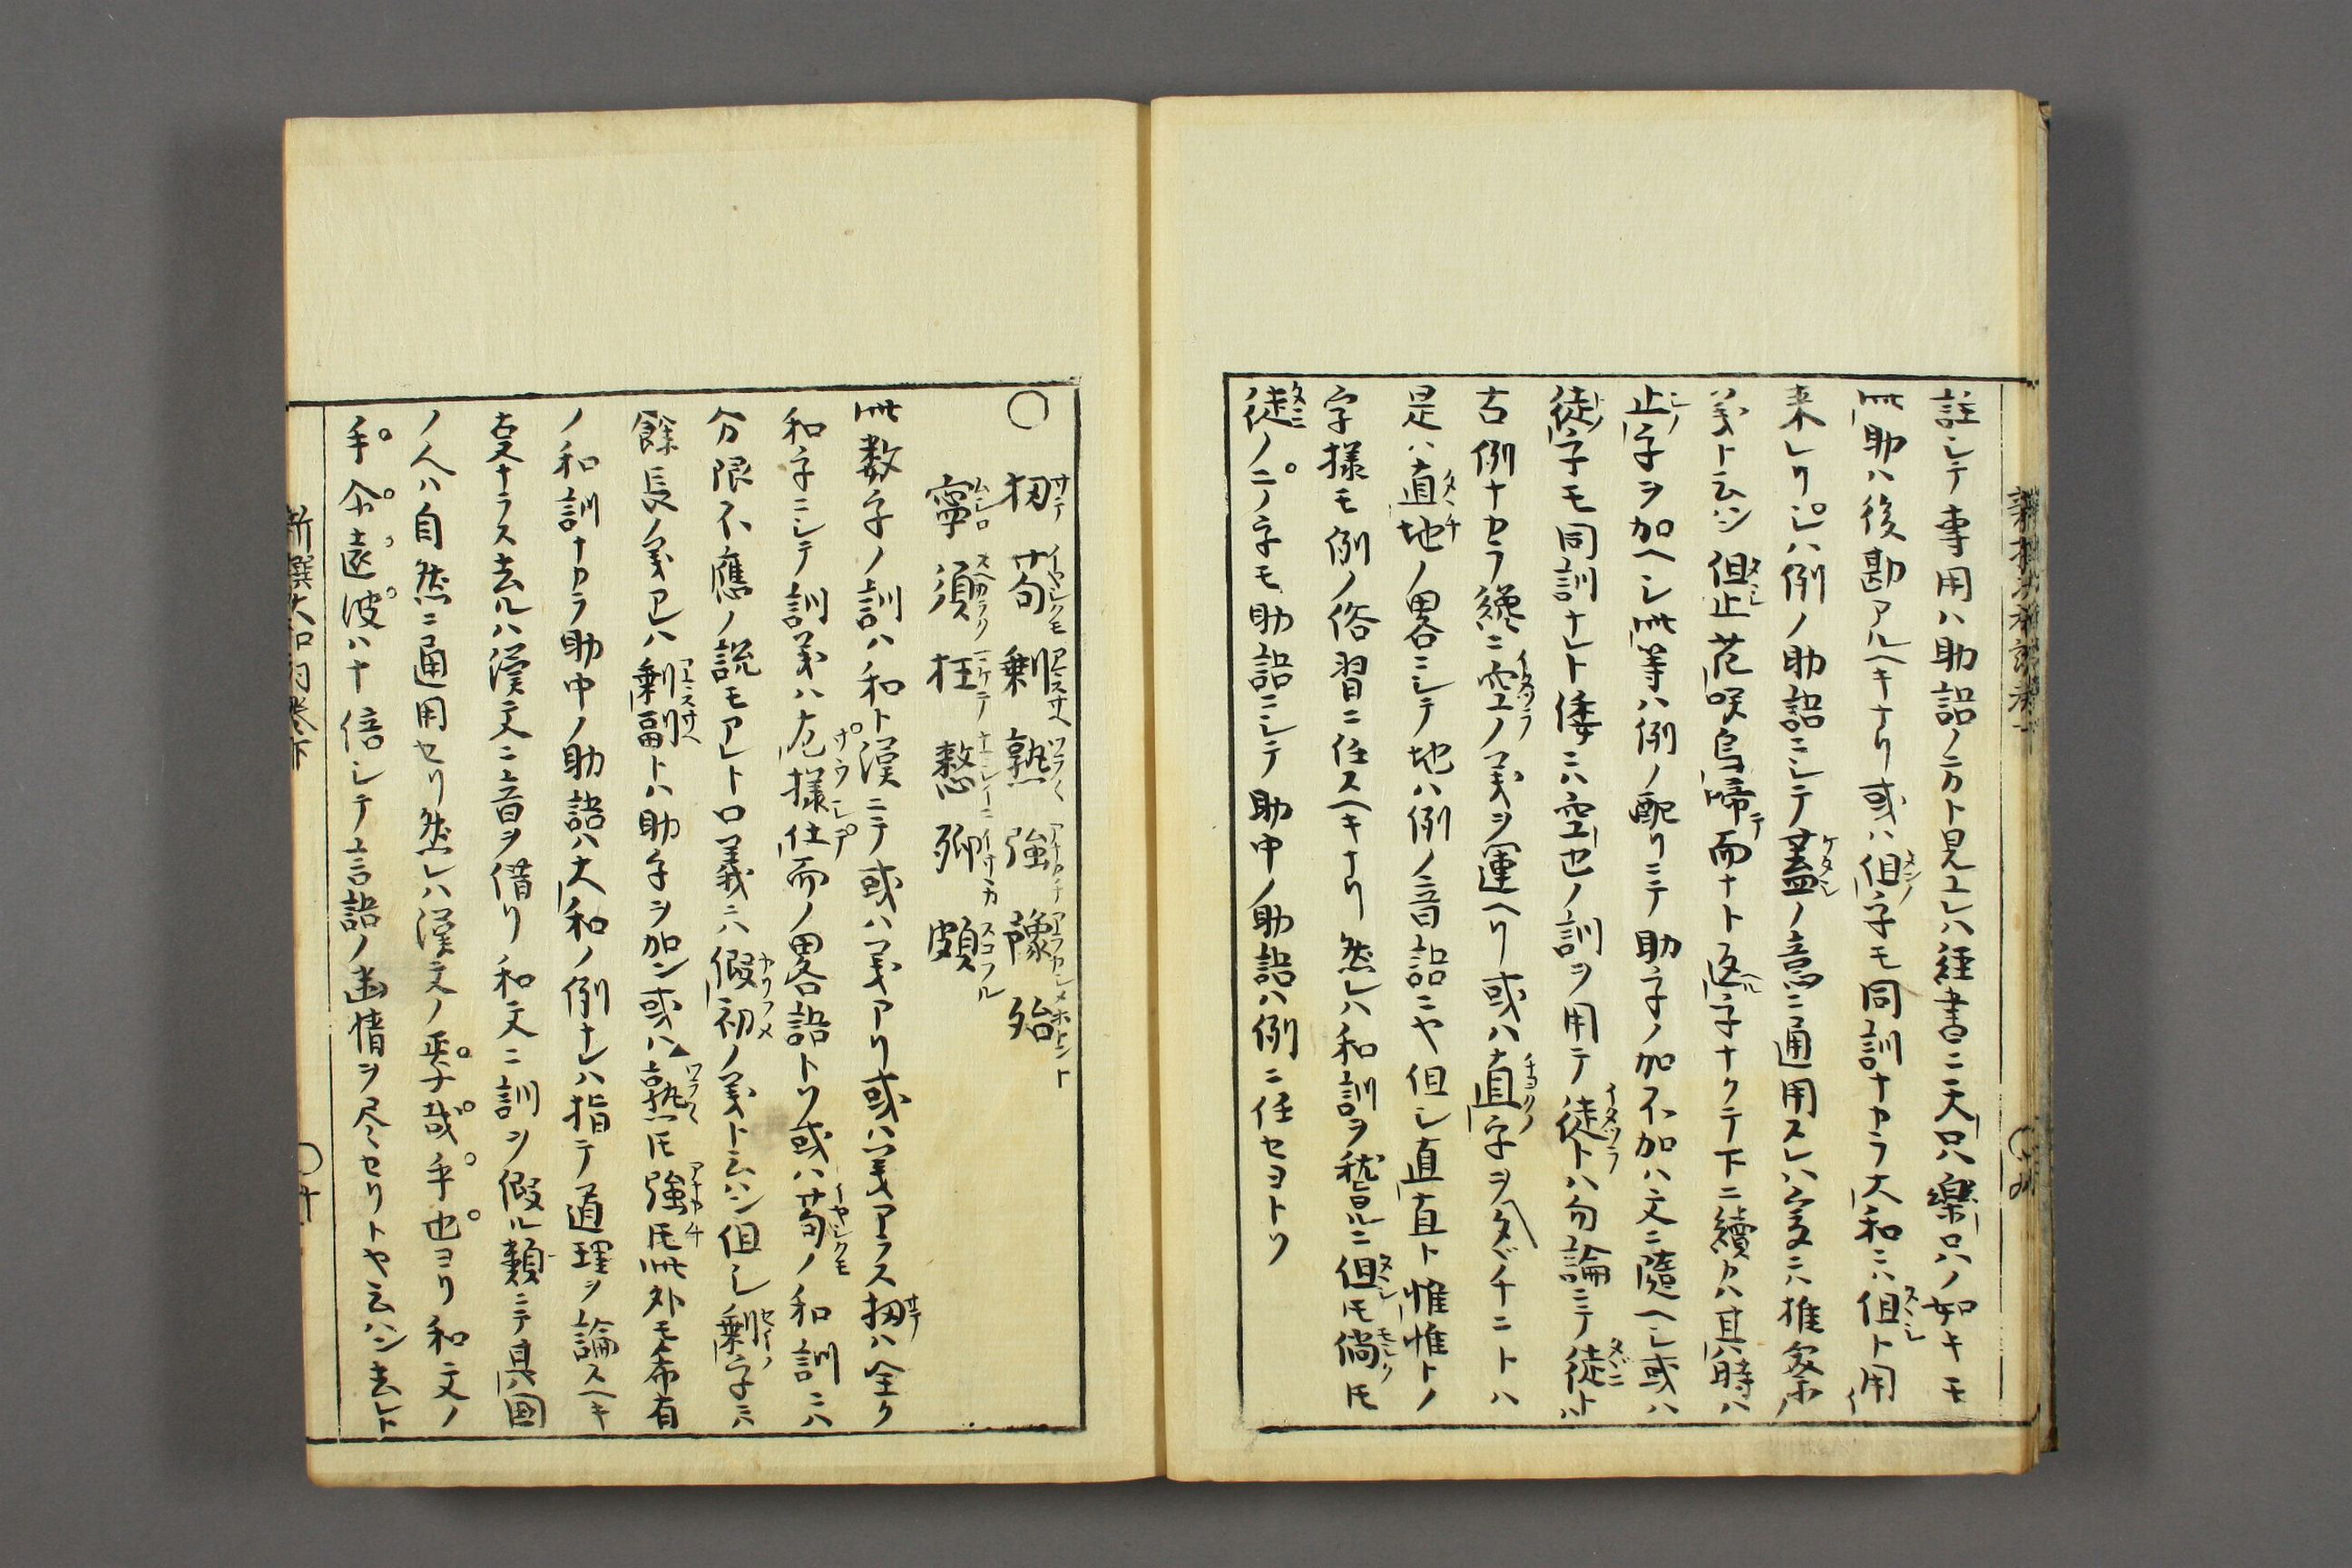 註シテ専用ハ助語ノ方ト見エレハ経書ニ天只ハ樂只ハノ如キモ
此助ハ後勘アルヘキナリ或ハ但字モ同訓ナカラ大和ニハ但ト用
来レリシハ例ノ助語ニシテ蓋ノ意ニ通用スレハ爰ニハ推察ノ
義ト云ハン但止花咲鳥啼而ナト返字ナクテ下ニ續カハ其時ハ
止字ヲ加ヘシ此等ハ例ノ配リニテ助字ノ加不加ハ文ニ随ヘシ或ハ
徒字モ同訓ナレト倭ニハ空也ノ訓ヲ用テ徒トハ勿論ニテ徒トハ
古例ナカラ纔ニ空ノ義ヲ運ヘリ或ハ直字ヲタヾチニトハ
是ハ直地ノ畧ニシテ地ハ例ノ音語ニヤ但シ直直ト惟惟トノ
字様モ例ノ俗習ニ任スヘキナリ然レハ和訓ヲ稽ルニ但モ倘モ
徒ノニノ字モ助語ニシテ助中ノ助語ハ例ニ任セヨトソ
○ 扨 苟 剰 熟 強 豫 殆
寧 須 枉 憖 聊 頗
此数字ノ訓ハ和ト漢ニテ或ハ義アリ或ハ義アラス扨ハ全ク
和字ニシテ訓義ハ左様仕而ノ畧語トソ或ハ苟ノ和訓ニハ
分限不應ノ説モアレト口義ニハ假初ノ義ト云ハン但シ剰字ニハ
餘長ノ義アレハ剰副トハ助字ヲ加ン或ハ熟モ強モ此外モ希有
ノ和訓ナカラ助中ノ助語ハ大和ノ例ナレハ指テ道理ヲ論スヘキ
叓ナラス去ルハ漢文ニ音ヲ借リ和文ニ訓ヲ假ル類ニテ其國
ノ人ハ自然ニ通用セリ然レハ漢文ノ焉哉乎也ヨリ和文ノ
手尓遠波ハ十倍シテ言語ノ幽情ヲ尽セリトヤ云ハン去レト
新撰大和詞巻下